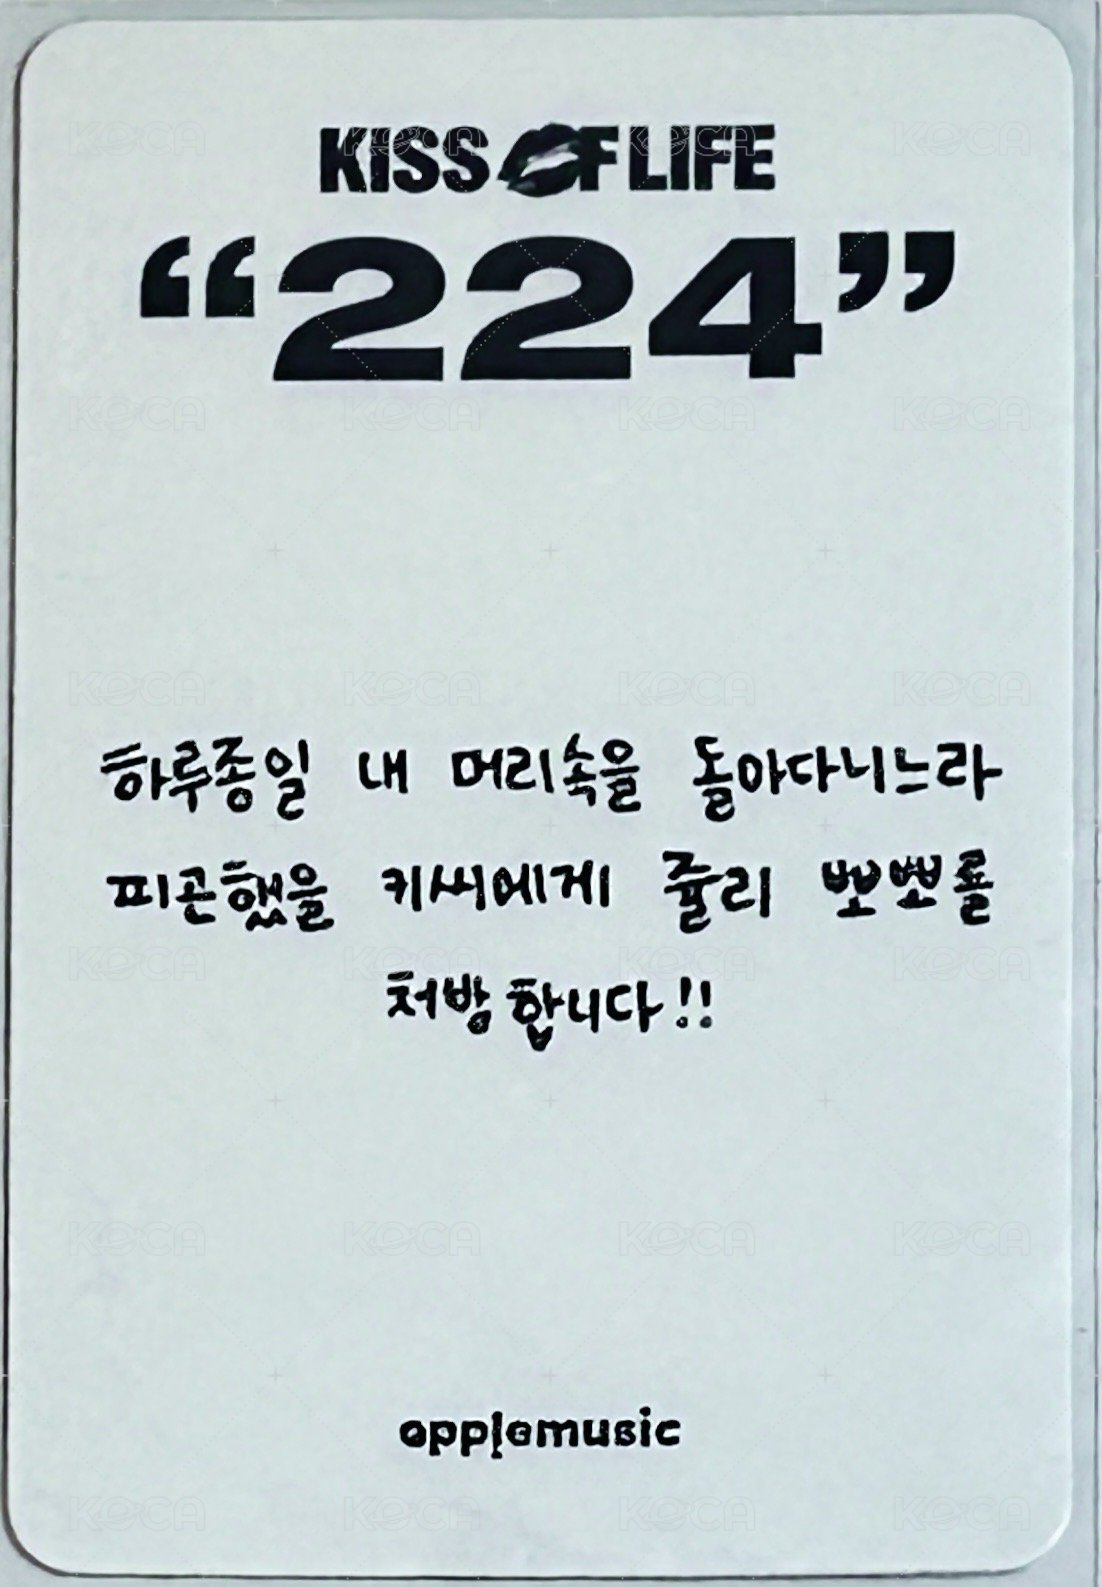 KISS OF LIFE
“224”
하루종일 내 머리속을 돌아다니느라
피곤했을 키씨에게 쥴리 뽀뽀를
처방합니다!!
applemusic
KOCA